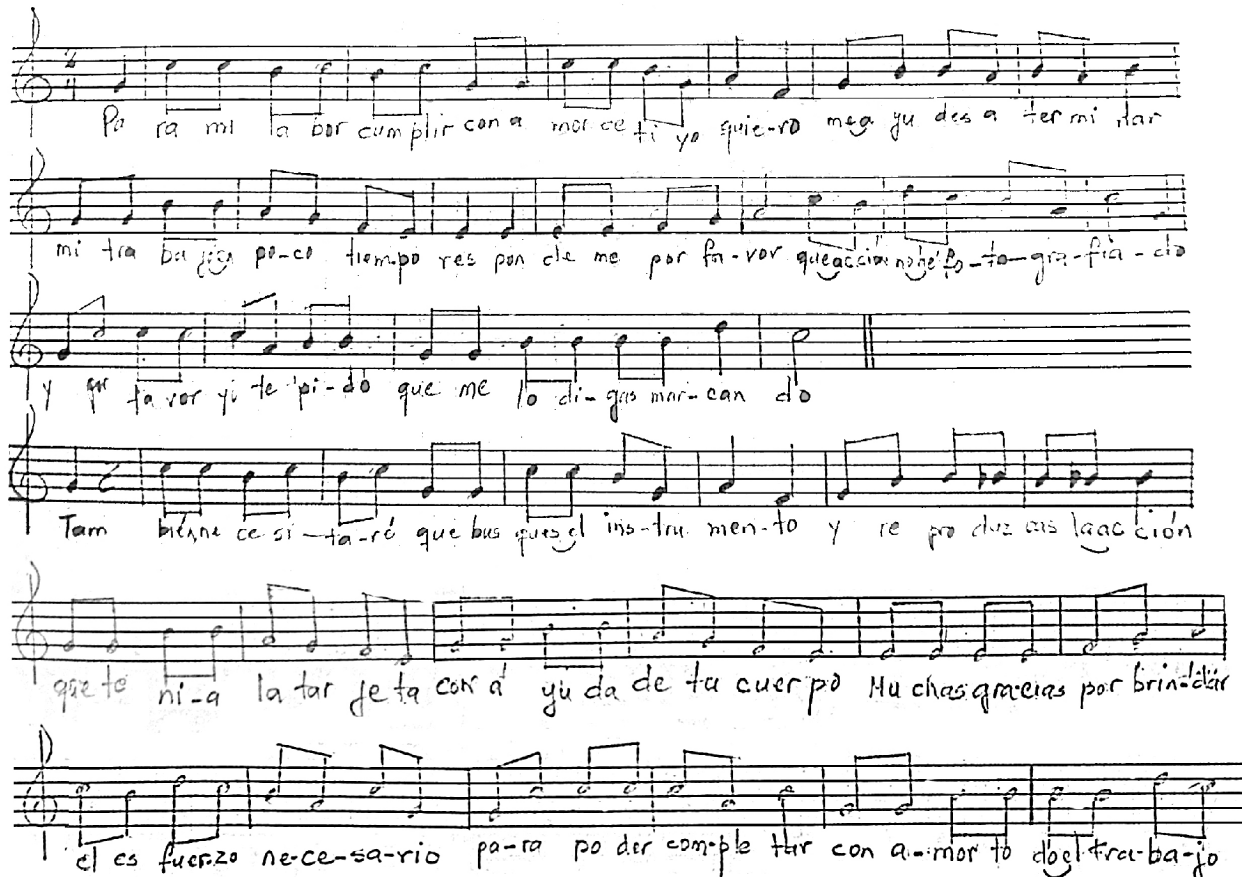 Pa ra mi la bor cumplir con a mor de ti yo quie-ro me a yu des a ter mi nar
mi tra ba jo en po-co tiem-po res pon de me por fa-vor que acción no he fo-to-gra-fia-do
y por fa vor yi te pi-do que me lo di-gas mar-can do
Tam bién ne ce si-ta-ré que bus ques el ins-tru men-to y re pro duz cas la ac ción
que te ni-a la tar je ta con a yu da de tu cuer po Mu chas gracias por brin-dar
el es fuer-zo ne-ce-sa-rio pa-ra po der com-ple tar con a-mor to do el tra-ba-jo